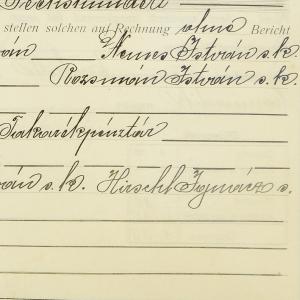 stellen solchen auf Rechnung ohne Bericht
Nemes István s. k.
Rozsman István s. k.
Takarékpénztár
s. k. Hirschl Ignácz s.